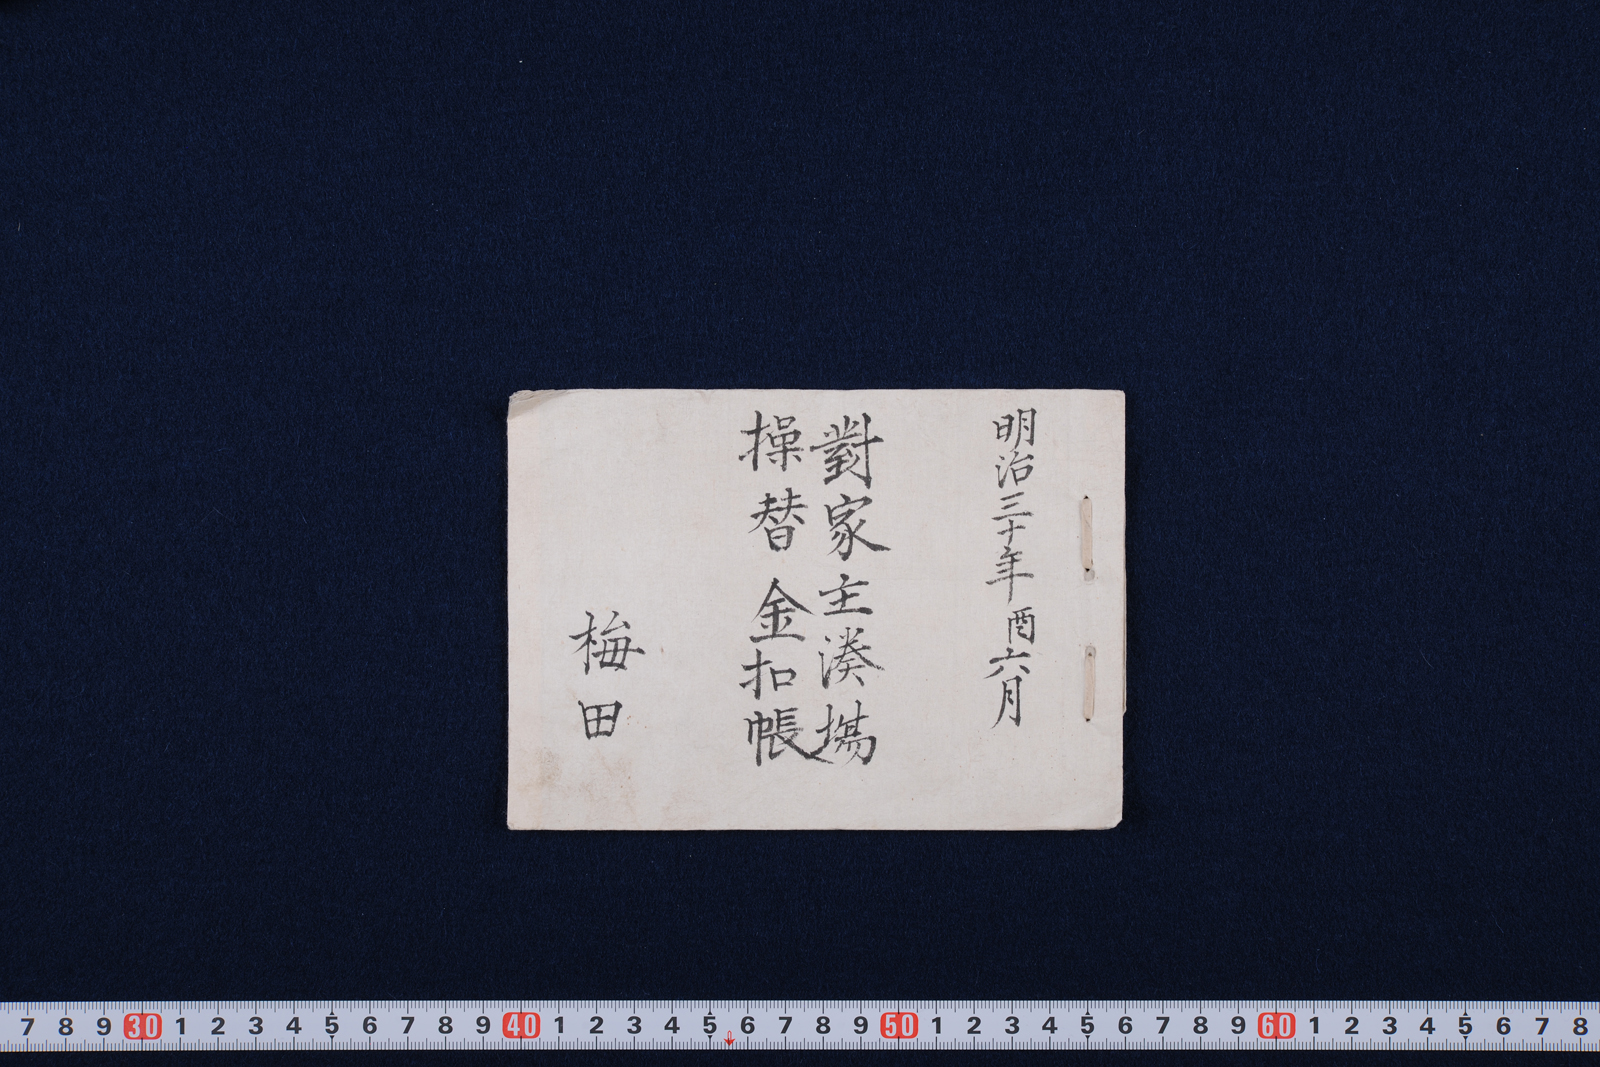 明治三十年酉六月
對家主湊塲
操替金扣帳
梅田
7 8 9 30 1 2 3 4 5 6 7 8 9 40 1 2 3 4 5 6 7 8 9 50 1 2 3 4 5 6 7 8 9 60 1 2 3 4 5 6 7 8